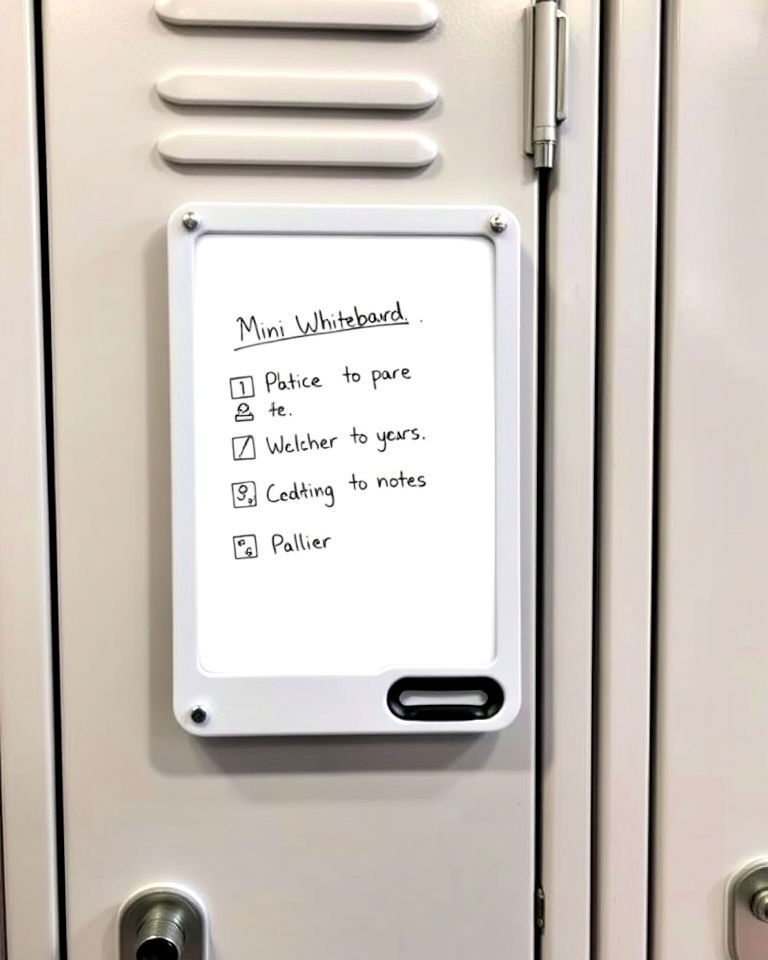 Mini Whitebard.
1 Platice to pare
te.
Welcher to years.
Cedting to notes
Pallier